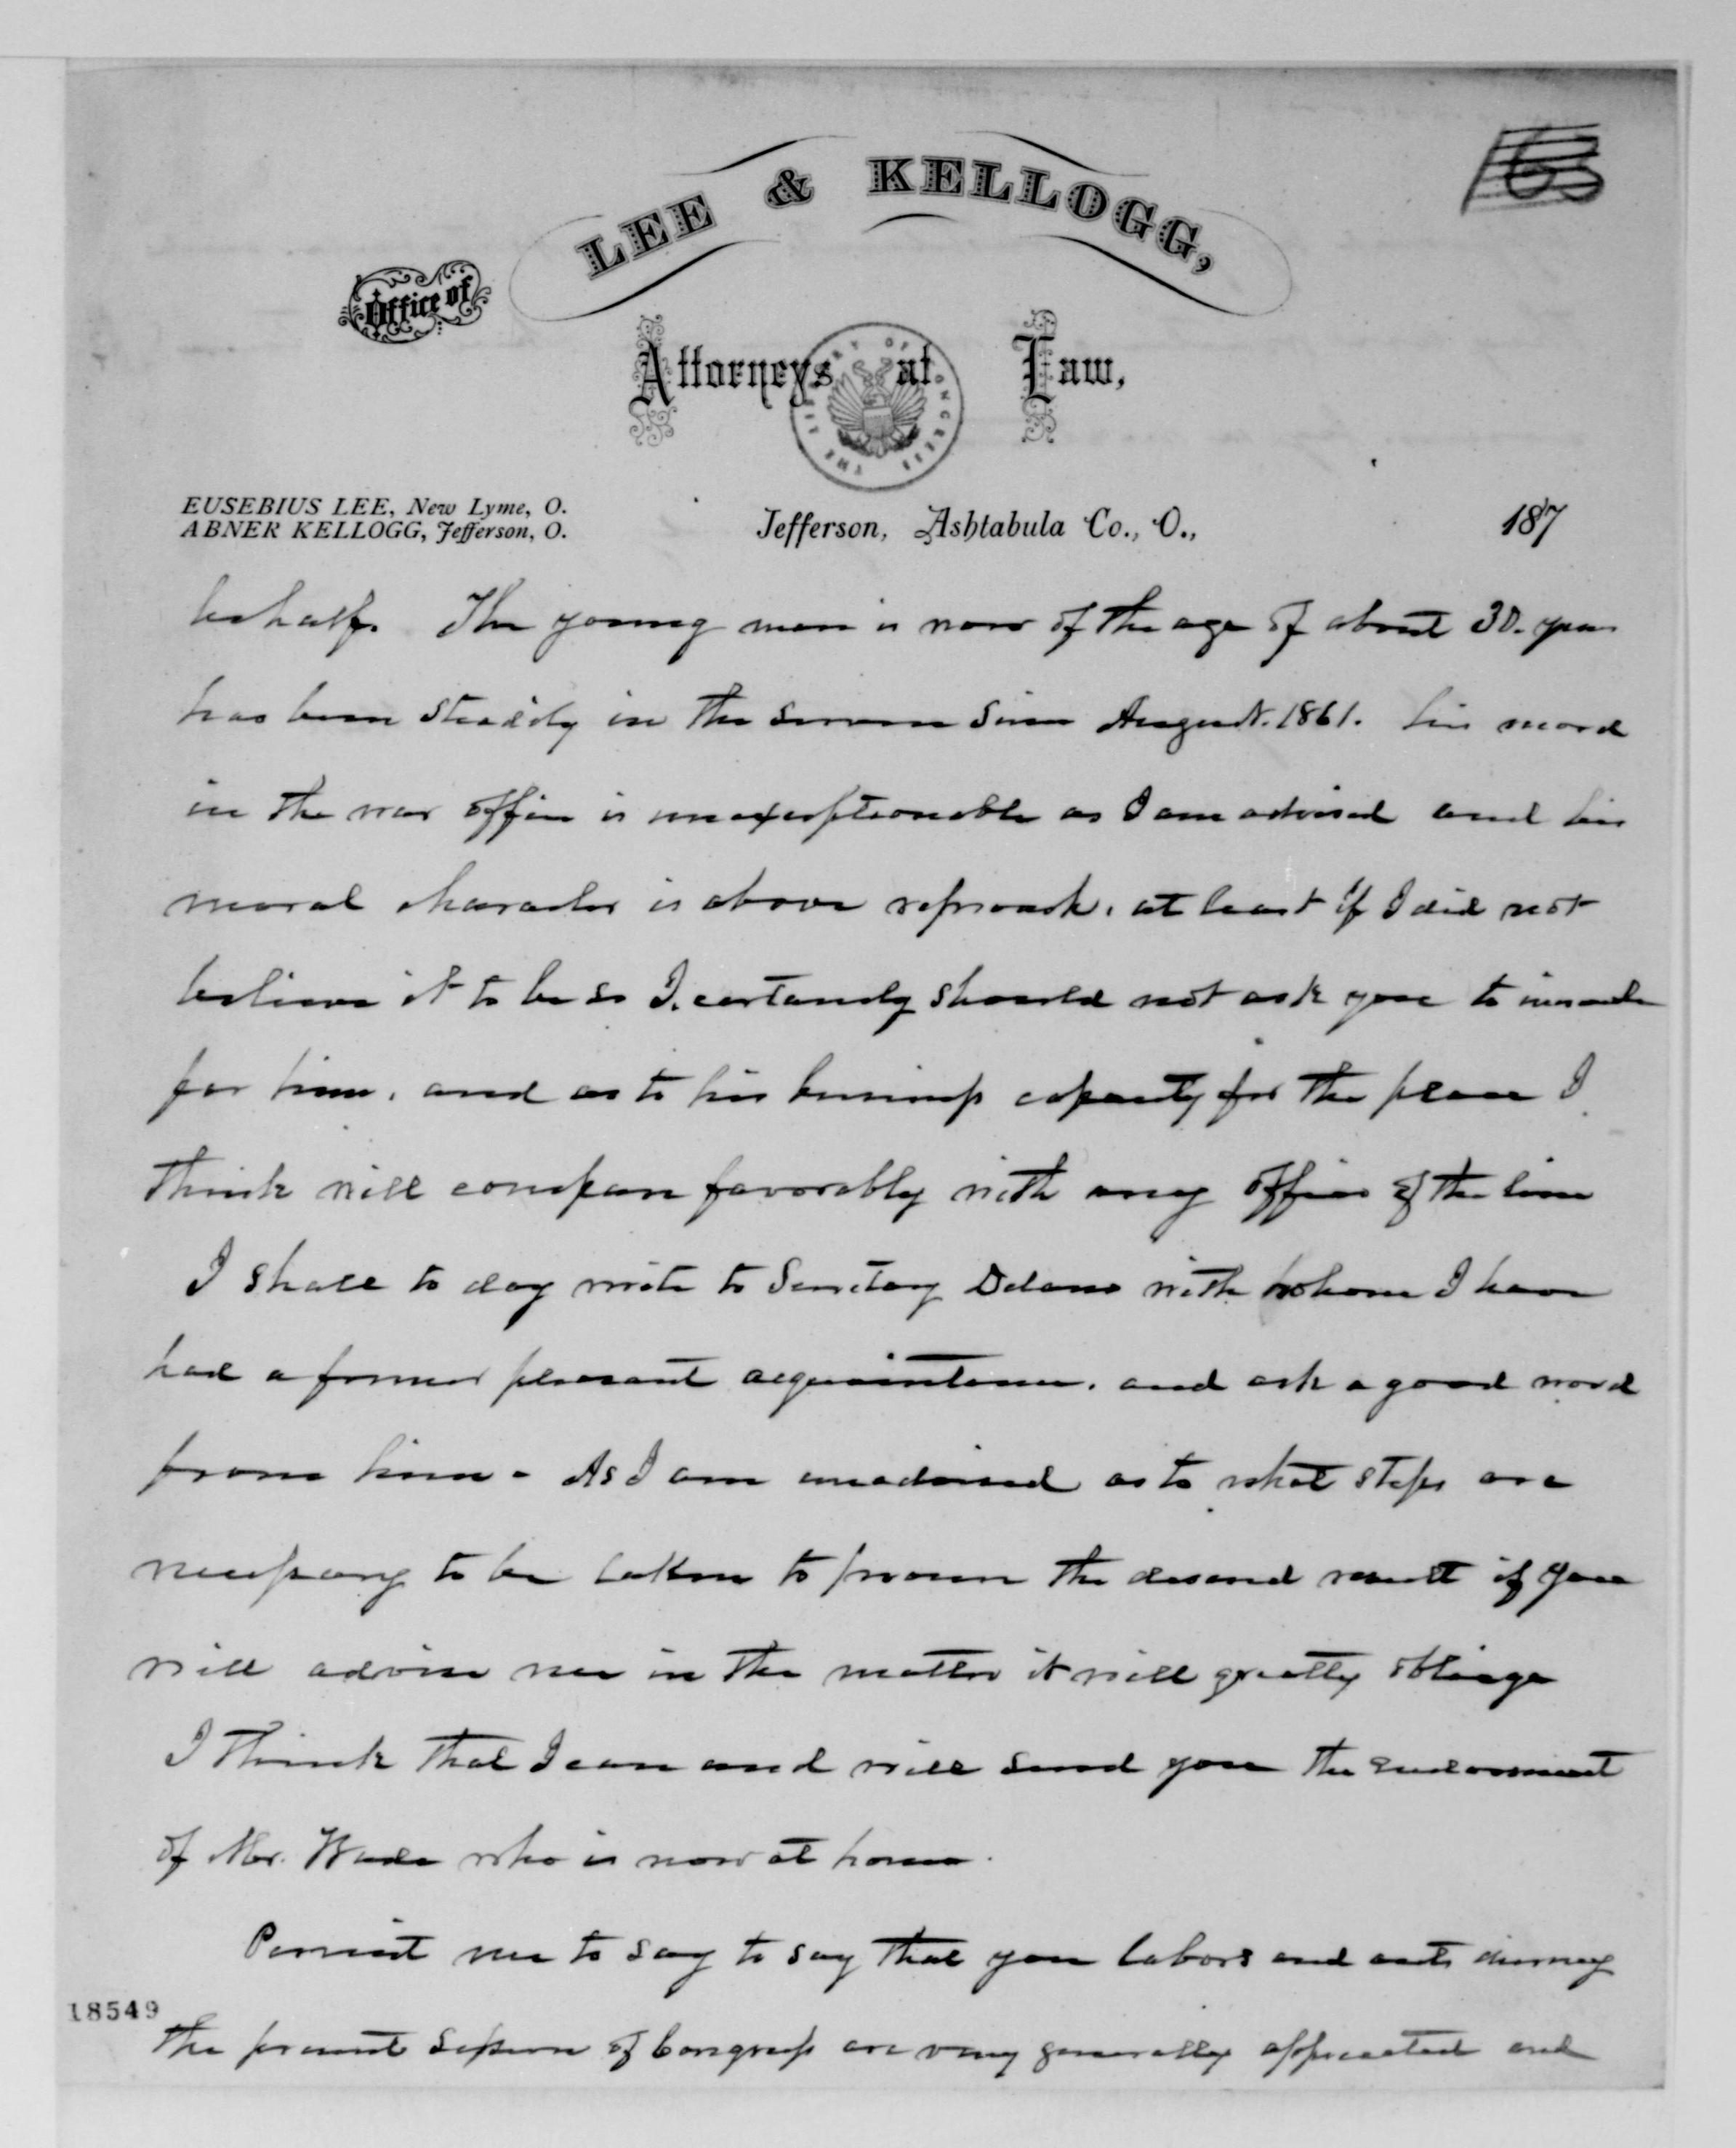 163
LEE & KELLOGG,
Office of
Attorneys at Law,
THE LIBRARY OF CONGRESS
EUSEBIUS LEE, New Lyme, O.
ABNER KELLOGG, Jefferson, O.
Jefferson, Ashtabula Co., O., 187
behalf. The young man is now of the age of about 30. years
has been steadily in the service since August. 1861. his record
in the war office is unexceptionable as I am advised and his
moral character is above reproach. at least if I did not
believe it to be so I certainly should not ask you to
for him. and as to his business capacity for the place I
think will compare favorably with any officer of the line
I shall to day write to Secretary Delano with whom I have
had a former pleasant acquaintance. and ask a good word
from him - As I am unadvised as to what steps are
necessary to be taken to procure the desired result if you
will advise me in the matter it will greatly obliege
I think that I can and will send you the endorsement
of Mr. Wade who is now at home.
Permit me to say to say that you labors and acts during
18549
the present session of Congress are very generally appreciated and